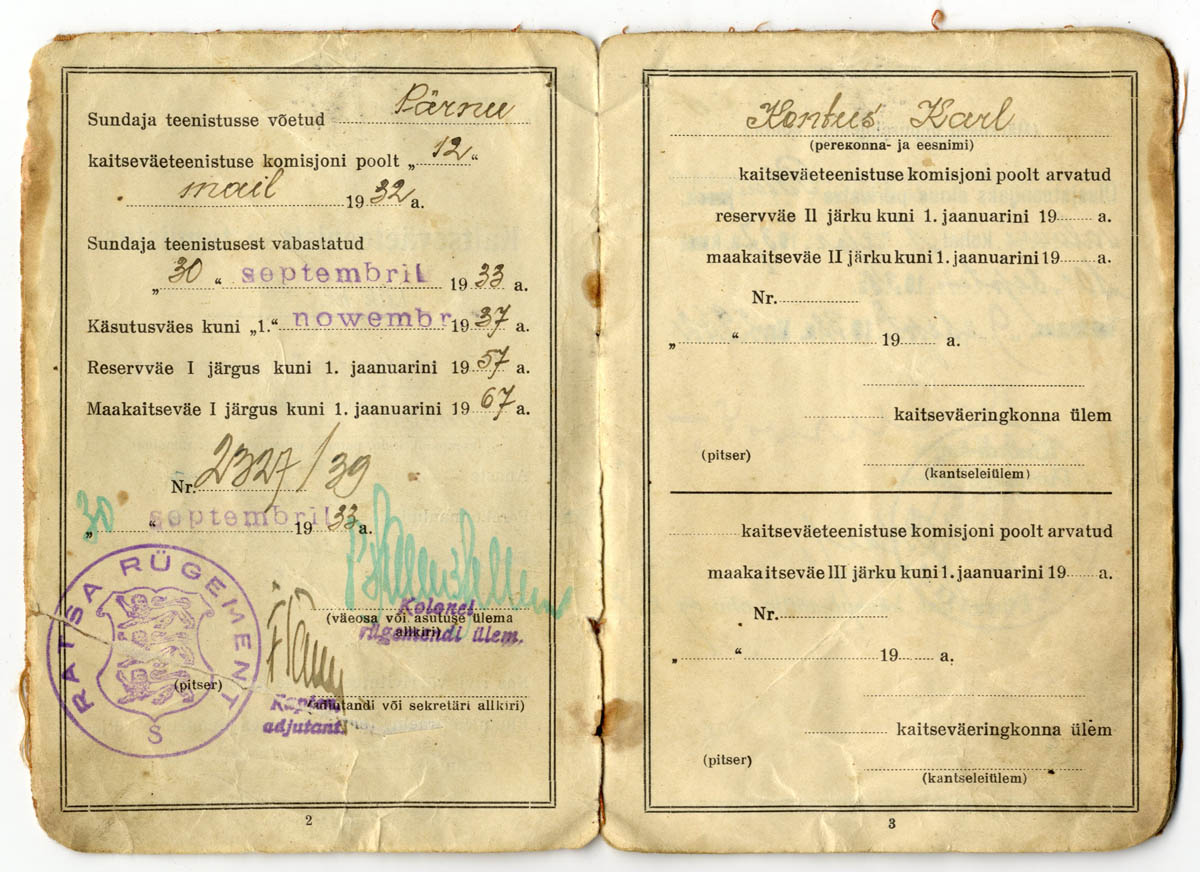 Sundaja teenistusse võetud Pärnu
kaitseväeteenistuse komisjoni poolt „ 12 “
mail 1932 a.
Sundaja teenistusest vabastatud
„ 30 “ septembril 1933 a.
Käsutusväes kuni „1.“ nowembr. 1937 a.
Reservväe I järgus kuni 1. jaanuarini 1957 a.
Maakaitseväe I järgus kuni 1. jaanuarini 1967 a.
Nr. 2327/39
„ 30 “ septembril 1933 a.
Kolonel
(väeosa või asutuse ülema
allkiri)
rügemendi ülem.
RATSA RÜGEMENT
S
(pitser)
Kapten,
(adjutandi või sekretäri allkiri)
adjutant.
2
Kontus Karl
(perekonna- ja eesnimi)
kaitseväeteenistuse komisjoni poolt arvatud
reservväe II järku kuni 1. jaanuarini 19 a.
maakaitseväe II järku kuni 1. jaanuarini 19 a.
Nr.
„ “ 19 a.
kaitseväeringkonna ülem
(pitser)
(kantseleiülem)
kaitseväeteenistuse komisjoni poolt arvatud
maakaitseväe III järku kuni 1. jaanuarini 19 a.
Nr.
„ “ 19 a.
kaitseväeringkonna ülem
(pitser)
(kantseleiülem)
3